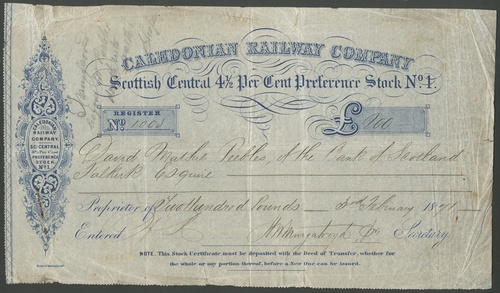 CALEDONIAN RAILWAY COMPANY
Scottish Central 4½ Per Cent Preference Stock No. 1.
REGISTER
No. 1005
£ 200
CALEDONIAN
RAILWAY
COMPANY
SC: CENTRAL
4½ Per Cent
PREFERENCE
STOCK
No. 1
David Peebles, of the Bank of Scotland
Falkirk Esquire
Proprietor of Two Hundred Pounds 2nd February 1871
Entered Secretary
NOTE. This Stock Certificate must be deposited with the Deed of Transfer, whether for
the whole or any portion thereof, before a New One can be issued.